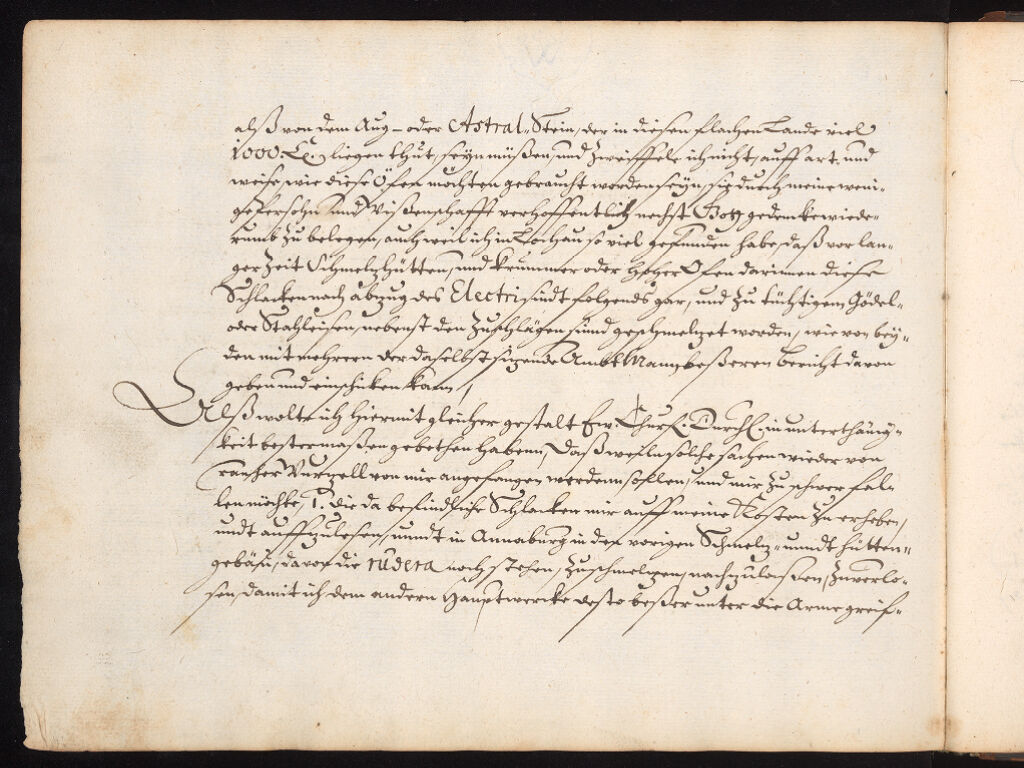 alß von dem Aug- oder Astral-Stein, der in diesen flachen Lande viel
1000 C. liegen thut, seyn müßen, und zweiffele ich nicht, auff art und
weise, wie diese Öfen möchten gebraucht worden seyn, sie durch meine weni-
ge Erfahr und Wißenschafft verhoffentlich nechst Gott gedencke wiede-
rumb zu belegen, auch weil ich in Lochau so viel gefunden habe, daß vor lan-
ger Zeit Schmeltzhütten, und krummer oder hoher Ofen darinnen diese
Schlacken nach abzug des Electri sindt folgends gar, und zu tüchtigem Gödel-
oder Stahleisen, nebenst den Zuschlägen sind geschmeltzet worden, wie von bey-
den mit mehrern der daselbst sizende Ambtmann beßeren bericht davon
geben und einschicken kann,
Alß wolte ich hiermit gleicher gestalt Ew. Churf. Durchl. in unterthänig-
keit bestermaßen gebethen habenn, Daß weiln solche sachen wieder von
rauher Wurzell von mir angefangen werdenn sollen, und mir zu schwer fal-
len möchte, 1. die da befindliche Schlacken mir auff meine Kosten zu erheben,
undt auffzulesen, unndt in Annaburg in den vorigen Schmeltz- unndt hütten-
gebäu, davon die rudera noch stehen, zuschmeltzen, nachzulaßen, zuverlö-
sen, damit ich dem andern Hauptwercke desto beßer unter die Arme greif-